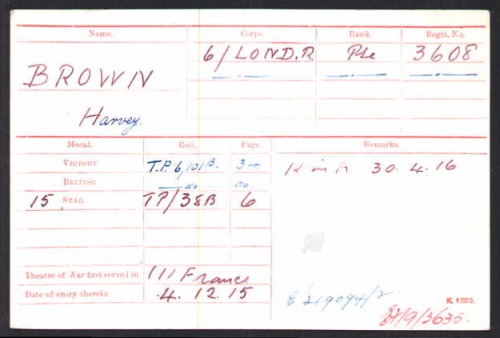 Name. Corps. Rank. Regtl. No.
BROWN 6/LOND.R. Pte 3608
Harvey.
Medal. Roll. Page. Remarks.
VICTORY T.P. 6/101B. 34 K in A 30.4.16
BRITISH do do.
15 STAR TP/38B 6
Theatre of War first served in 111 France
Date of entry therein 4.12.15
E 219094/2 K. 1380.
/9/3635.